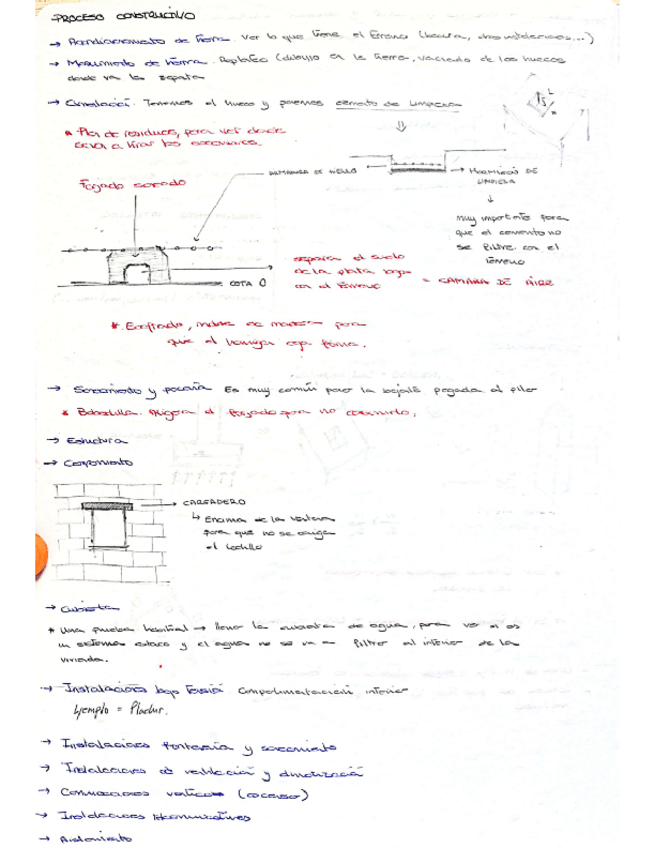 PROCESO CONSTRUCTIVO
→ Acondicionamiento de tierra. Ver lo que tiene el terreno (basura, obras anteriores...)
→ Movimiento de tierra. Replanteo (dibujo en la tierra, vaciado de los huecos
donde va la zapata
→ Cimentación. Tenemos el hueco y ponemos cemento de limpieza
* Plan de residuos, para ver donde
se va a tirar los escombros.
Forjado sanado
ARMADURA DE
HORMIGÓN DE
LIMPIEZA
muy importante para
que el cemento no
se filtre con el
terreno
COTA 0
separa el suelo
de la planta baja
con el terreno
= CAMARA DE AIRE
* Encofrado, molde de madera para
que el hormigón coja forma.
→ Saneamiento y Es muy común poner la bajante pegada al pilar
* Bovedilla. Aligera el forjado para no
→ Estructura
→ Cerramiento
→ CARGADERO
↳ Encima de la ventana
para que no se caiga
el ladrillo
→ Cubierta
* Una prueba habitual → llenar la cubierta de agua, para ver si es
un sistema estanco y el agua no se va a filtrar al interior de la
vivienda.
→ Instalaciones baja tensión compartimentación interior
Ejemplo = Pladur.
→ Instalaciones fontanería y saneamiento
→ Instalaciones de ventilación y climatización
→ Comunicaciones verticales (ascensor)
→ Instalaciones telecomunicaciones
→ Aislamiento